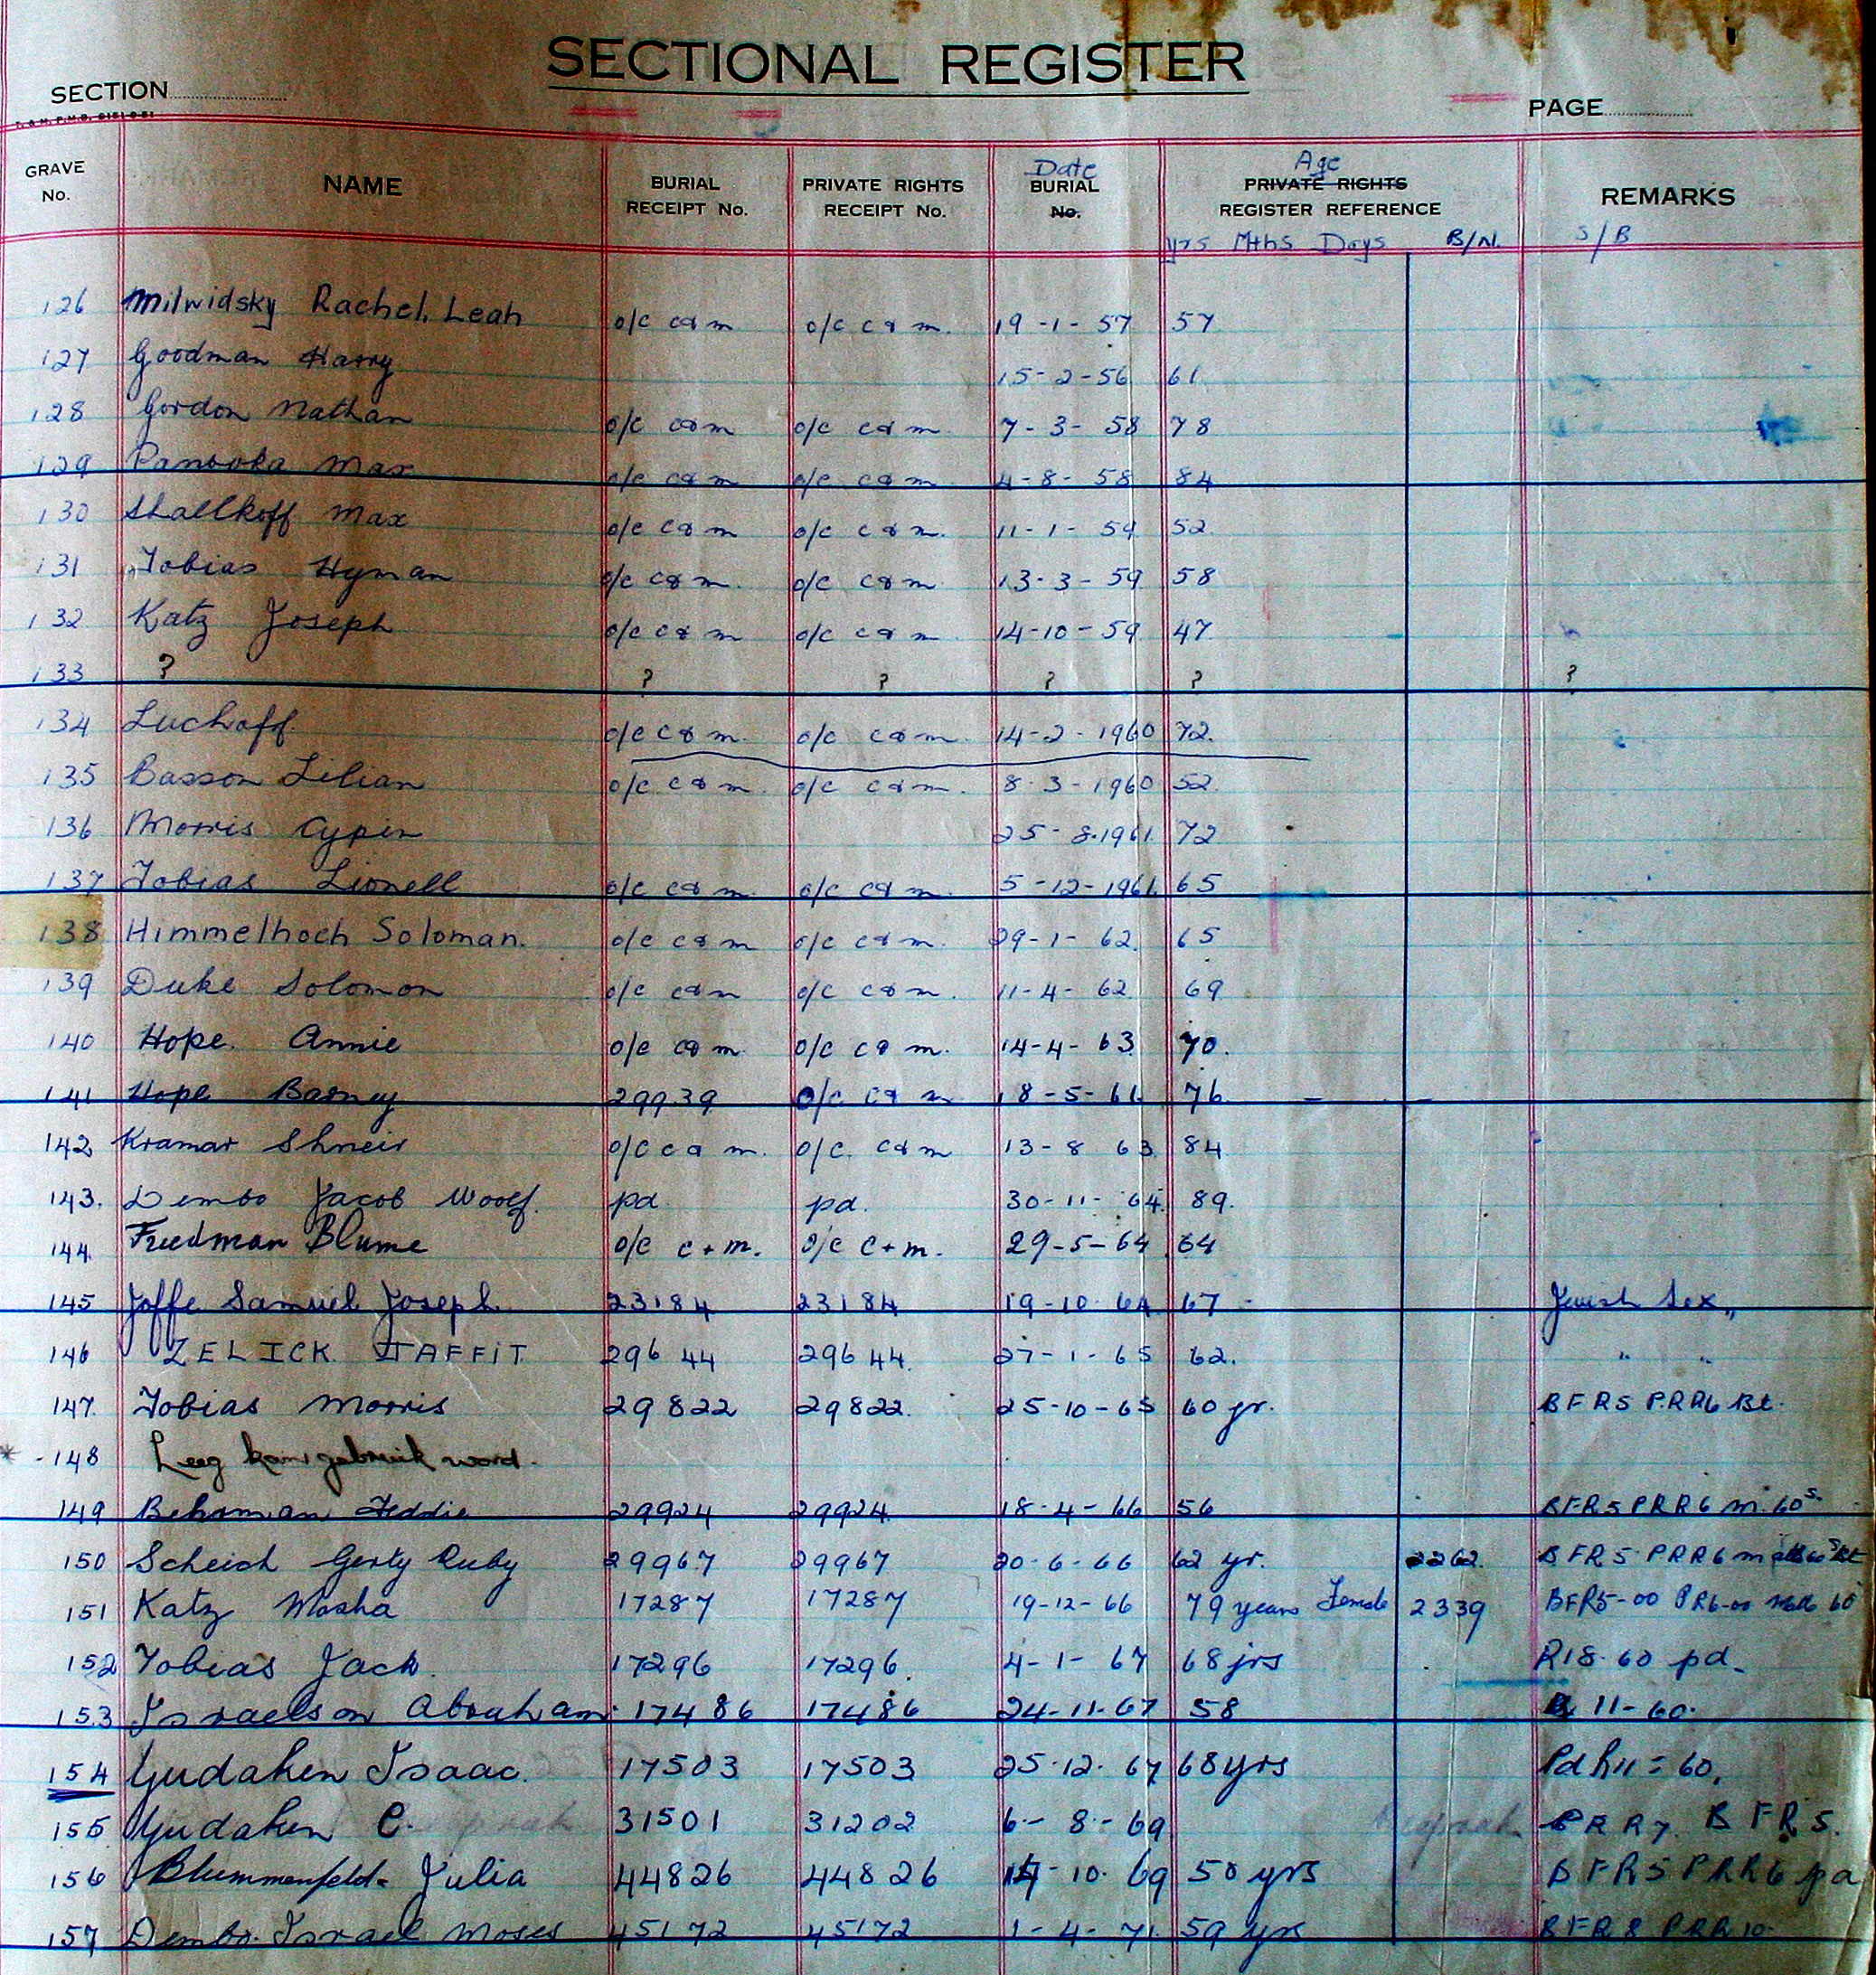 SECTIONAL REGISTER
SECTION
PAGE
GRAVE No. NAME BURIAL RECEIPT No. PRIVATE RIGHTS RECEIPT No. Date BURIAL No. Age PRIVATE RIGHTS REGISTER REFERENCE REMARKS
yrs Mths Days B/N. S/B
126 Milwidsky Rachel Leah o/c c&m o/c c&m. 19-1-57 57
127 Goodman Harry 15-2-56 61
128 Gordon Nathan o/c c&m o/c c&m. 7-3-58 78
129 Max o/c c&m o/c c&m 4-8-58 84
130 Shallkoff Max o/c c&m o/c c&m. 11-1-59 52
131 Tobias Hyman o/c c&m. o/c c&m. 13-3-59 58
132 Katz Joseph o/c c&m o/c c&m. 14-10-59 47
133 ? ? ? ? ? ?
134 Luchoff o/c c&m. o/c c&m. 14-2-1960 72.
135 Basson Lilian o/c c&m. o/c c&m. 8-3-1960 52.
136 Morris Cypin 25-8-1961. 72
137 Tobias Lionell o/c c&m. o/c c&m. 5-12-1961. 65
138 Himmelhoch Soloman. o/c c&m o/c c&m. 29-1-62. 65
139 Duke Solomon o/c c&m o/c c&m. 11-4-62 69
140 Hope. Annie o/c c&m. o/c c&m. 14-4-63 70.
141 Hope Barney o/c c&m 76
142 Kramar Shneir o/c c&m. o/c. c&m 13-8 63 84
143. Dembo Jacob Woolf. pd. pd. 30-11-64. 89.
144. Friedman Blume o/c c+m. o/c c+m. 29-5-64 64
145 Joffe Samuel Joseph. 23184 23184 19-10-64 67 - Jewish Sex,,
146 ZELICK TAFFIT 29644 29644. 27-1-65 62. " "
147. Tobias Morris 29822 29822. 25-10-65 60 yr. BFR5 PRR6 Bt.
* -148 Leeg kan gebruik word.
149 Teddie 29924 29924. 18-4-66 56 BFR5 PRR6 m. 60s.
150 Scheich Gerty Ruby 29967 29967 20-6-66 62 yr. 2262. BFR5 PRR6
151 Katz Mosha 17287 17287 19-12-66 79 years Female 2339 BFR5-00 PR6-00 60
152 Tobias Jack. 17296 17296. 4-1-67 68 jrs R18-60 pd.
153 Israelson Abraham. 17486 17486 24-11-67 58 11-60.
154 Yudaken Isaac. 17503 17503 25-12-67 68 yrs Pd R11=60.
155 Yudaken C. 31501 31202 6-8-69 PRR7. BFR5.
156 Blummenfeld. Julia 44826 44826 10-69 50 yrs BFR5 PRR6 pd
157 Dembo. Israel Moses 45172 45172 1-4-71. 59 yrs BFR8 PRR10.